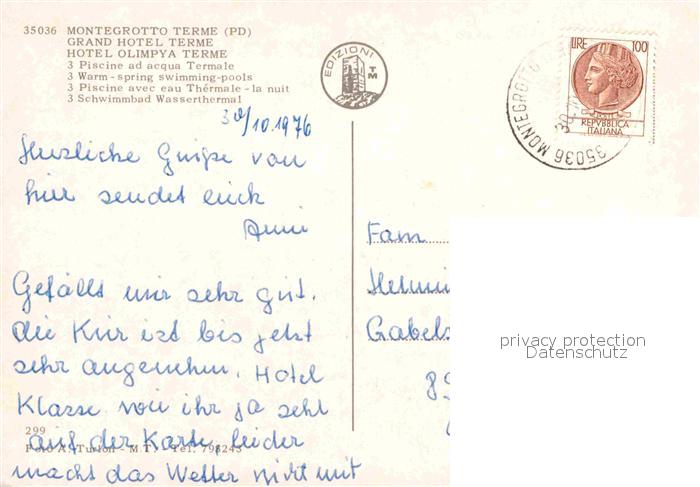 35036 MONTEGROTTO TERME (PD)
GRAND HOTEL TERME
HOTEL OLIMPYA TERME
3 Piscine ad acqua Termale
3 Warm-spring swimming-pools
3 Piscine avec eau Thérmale - la nuit
3 Schwimmbad Wasserthermal
EDIZIONI
TM
LIRE 100
POSTE
REPVBBLICA
ITALIANA
35036 MONTEGROTTO
30/10.1976
Herzliche Grüße von
hier sendet euch
Anni
Gefällt mir sehr gut.
die Kur ist bis jetzt
sehr angenehm. Hotel
Klasse wie ihr ja seht
auf der Karte leider
macht das Wetter nicht mit
299
Foto A. Turlon - M.T. - Tel. 793243
Fam
Helmu
Gabels
8
privacy protection
Datenschutz